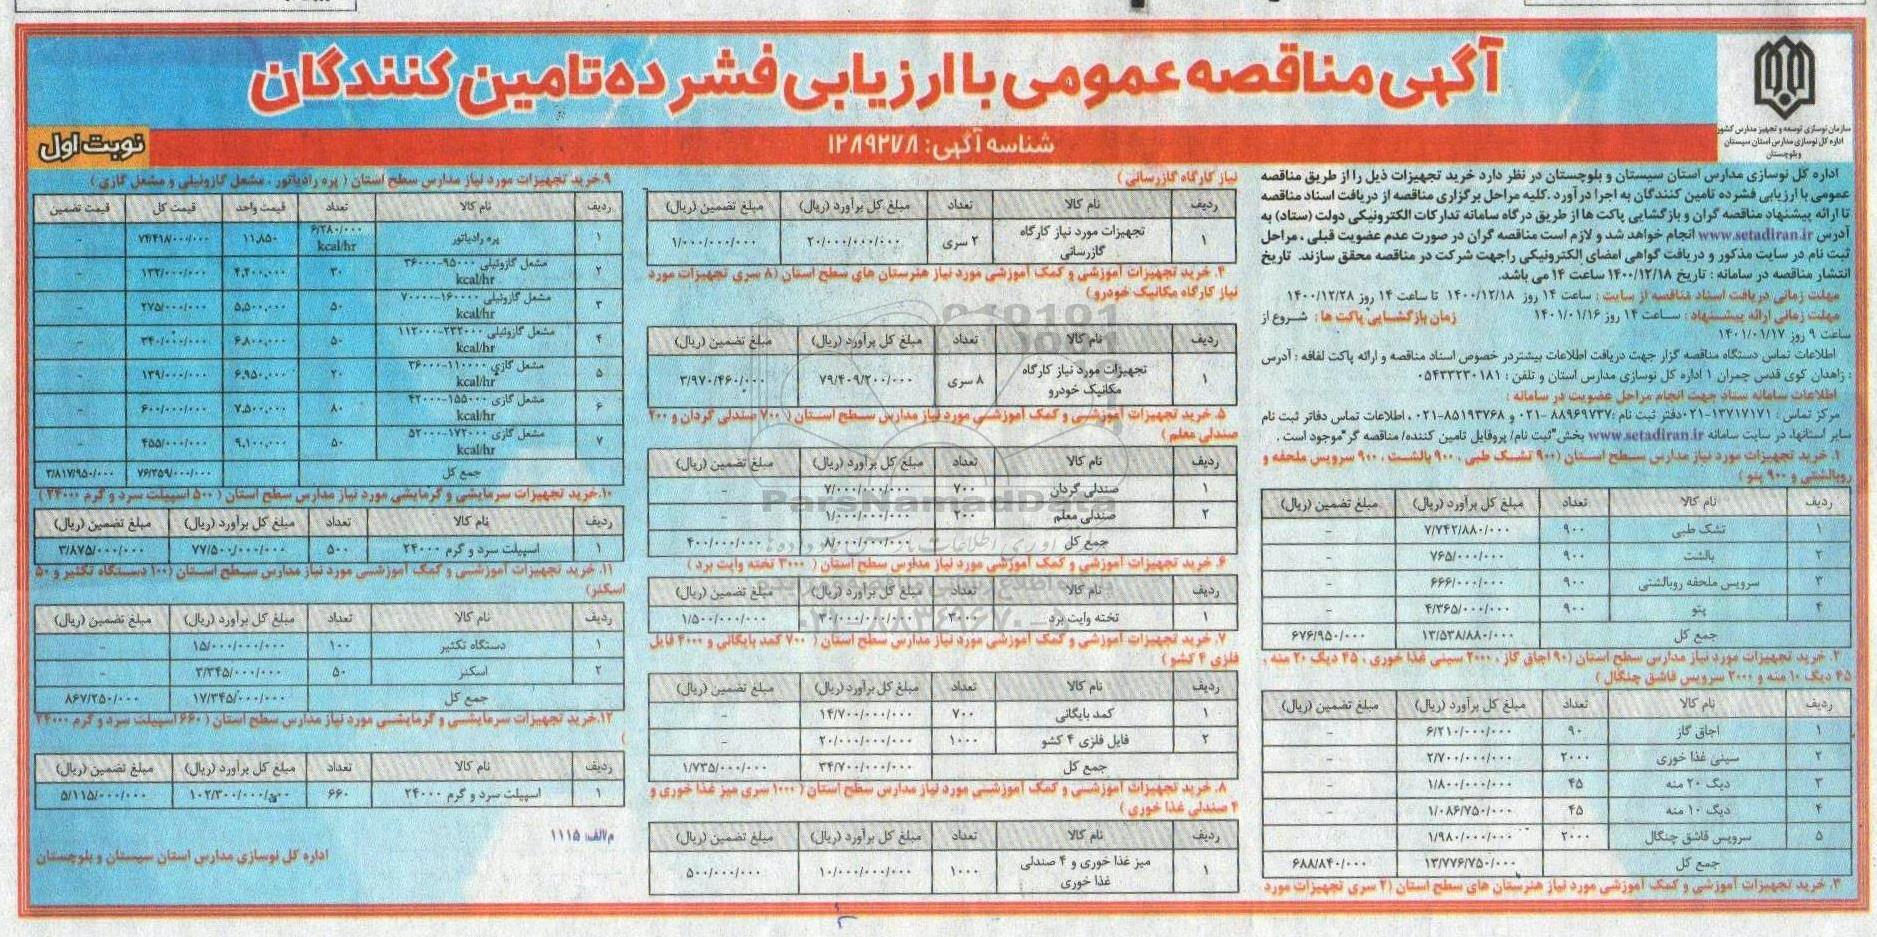 آگهی مناقصه عمومی با ارزیابی فشرده تامین کنندگان
سازمان نوسازی توسعه و تجهیز مدارس کشور
اداره کل نوسازی مدارس استان سیستان
وبلوچستان
شناسه آگهی: ۱۲۸۹۲۷۸
نوبت اول
اداره کل نوسازی مدارس استان سیستان و بلوچستان در نظر دارد خرید تجهیزات ذیل را از طریق مناقصه
عمومی با ارزیابی فشرده تامین کنندگان به اجرا در آورد. کلیه مراحل برگزاری مناقصه از دریافت اسناد مناقصه
تا ارائه پیشنهاد مناقصه گران و بازگشایی پاکت ها از طریق درگاه سامانه تدارکات الکترونیکی دولت (ستاد) به
آدرس www.setadiran.ir انجام خواهد شد و لازم است مناقصه گران در صورت عدم عضویت قبلی، مراحل
ثبت نام در سایت مذکور و دریافت گواهی امضای الکترونیکی راجهت شرکت در مناقصه محقق سازند. تاریخ
انتشار مناقصه در سامانه : تاریخ ۱۴۰۰/۱۲/۱۸ ساعت ۱۴ می باشد.
مهلت زمانی دریافت اسناد مناقصه از سایت : ساعت ۱۴ روز ۱۴۰۰/۱۲/۱۸ تا ساعت ۱۴ روز ۱۴۰۰/۱۲/۲۸
مهلت زمانی ارائه پیشنهاد : ساعت ۱۴ روز ۱۴۰۱/۰۱/۱۶ زمان بازگشایی پاکت ها : شروع از
ساعت ۹ روز ۱۴۰۱/۰۱/۱۷
اطلاعات تماس دستگاه مناقصه گزار جهت دریافت اطلاعات بیشتردر خصوص اسناد مناقصه و ارائه پاکت لفافه : آدرس
: زاهدان کوی قدس چمران ۱ اداره کل نوسازی مدارس استان و تلفن : ۰۵۴۳۳۲۳۰۱۸۱
اطلاعات سامانه ستاد جهت انجام مراحل عضویت در سامانه :
مرکز تماس : ۱۳۷۱۷۱۷۱-۰۲۱دفتر ثبت نام :۸۸۹۶۹۷۳۷-۰۲۱ و ۸۵۱۹۳۷۶۸-۰۲۱ ، اطلاعات تماس دفاتر ثبت نام
سایر استانها، در سایت سامانه www.setadiran.ir بخش"ثبت نام/ پروفایل تامین کننده/ مناقصه گر"موجود است .
۱. خرید تجهیزات مورد نیاز مدارس سطح استان (۹۰۰ تشک طبی ، ۹۰۰ بالشت ، ۹۰۰ سرویس ملحفه و
روبالشتی و ۹۰۰ پتو )
ردیف نام کالا تعداد مبلغ کل برآورد (ریال) مبلغ تضمین (ریال)
۱ تشک طبی ۹۰۰ ۷/۷۴۲/۸۸۰/۰۰۰ -
۲ بالشت ۹۰۰ ۷۶۵/۰۰۰/۰۰۰ -
۳ سرویس ملحفه روبالشتی ۹۰۰ ۶۶۶/۰۰۰/۰۰۰ -
۴ پتو ۹۰۰ ۴/۳۶۵/۰۰۰/۰۰۰ -
جمع کل ۱۳/۵۳۸/۸۸۰/۰۰۰ ۶۷۶/۹۵۰/۰۰۰
۲. خرید تجهیزات مورد نیاز مدارس سطح استان (۹۰ اجاق گاز ، ۲۰۰۰ سینی غذا خوری ، ۴۵ دیگ ۲۰ منه ،
۴۵ دیگ ۱۰ منه و ۲۰۰۰ سرویس قاشق چنگال )
ردیف نام کالا تعداد مبلغ کل برآورد (ریال) مبلغ تضمین (ریال)
۱ اجاق گاز ۹۰ ۶/۲۱۰/۰۰۰/۰۰۰ -
۲ سینی غذا خوری ۲۰۰۰ ۲/۷۰۰/۰۰۰/۰۰۰ -
۳ دیگ ۲۰ منه ۴۵ ۱/۸۰۰/۰۰۰/۰۰۰ -
۴ دیگ ۱۰ منه ۴۵ ۱/۰۸۶/۷۵۰/۰۰۰ -
۵ سرویس قاشق چنگال ۲۰۰۰ ۱/۹۸۰/۰۰۰/۰۰۰ -
جمع کل ۱۳/۷۷۶/۷۵۰/۰۰۰ ۶۸۸/۸۴۰/۰۰۰
۳. خرید تجهیزات آموزشی و کمک آموزشی مورد نیاز هنرستان های سطح استان (۲ سری تجهیزات مورد
نیاز کارگاه گازرسانی )
ردیف نام کالا تعداد مبلغ کل برآورد (ریال) مبلغ تضمین (ریال)
۱ تجهیزات مورد نیاز کارگاه گازرسانی ۲ سری ۲۰/۰۰۰/۰۰۰/۰۰۰ ۱/۰۰۰/۰۰۰/۰۰۰
۴. خرید تجهیزات آموزشی و کمک آموزشی مورد نیاز هنرستان های سطح استان (۸ سری تجهیزات مورد
نیاز کارگاه مکانیک خودرو )
ردیف نام کالا تعداد مبلغ کل برآورد (ریال) مبلغ تضمین (ریال)
۱ تجهیزات مورد نیاز کارگاه مکانیک خودرو ۸ سری ۷۹/۴۰۹/۲۰۰/۰۰۰ ۳/۹۷۰/۴۶۰/۰۰۰
۵. خرید تجهیزات آموزشی و کمک آموزشی مورد نیاز مدارس سطح استان ( ۷۰۰ صندلی گردان و ۲۰۰
صندلی معلم )
ردیف نام کالا تعداد مبلغ کل برآورد (ریال) مبلغ تضمین (ریال)
۱ صندلی گردان ۷۰۰ ۷/۰۰۰/۰۰۰/۰۰۰ -
۲ صندلی معلم ۲۰۰ ۱/۰۰۰/۰۰۰/۰۰۰ -
جمع کل ۸/۰۰۰/۰۰۰/۰۰۰ ۴۰۰/۰۰۰/۰۰۰
۶. خرید تجهیزات آموزشی و کمک آموزشی مورد نیاز مدارس سطح استان ( ۳۰۰۰ تخته وایت برد )
ردیف نام کالا تعداد مبلغ کل برآورد (ریال) مبلغ تضمین (ریال)
۱ تخته وایت برد ۳۰۰۰ ۳۰/۰۰۰/۰۰۰/۰۰۰ ۱/۵۰۰/۰۰۰/۰۰۰
۷. خرید تجهیزات آموزشی و کمک آموزشی مورد نیاز مدارس سطح استان ( ۷۰۰ کمد بایگانی و ۴۰۰۰ فایل
فلزی ۴ کشو )
ردیف نام کالا تعداد مبلغ کل برآورد (ریال) مبلغ تضمین (ریال)
۱ کمد بایگانی ۷۰۰ ۱۴/۷۰۰/۰۰۰/۰۰۰ -
۲ فایل فلزی ۴ کشو ۱۰۰۰ ۲۰/۰۰۰/۰۰۰/۰۰۰ -
جمع کل ۳۴/۷۰۰/۰۰۰/۰۰۰ ۱/۷۳۵/۰۰۰/۰۰۰
۸. خرید تجهیزات آموزشی و کمک آموزشی مورد نیاز مدارس سطح استان ( ۱۰۰۰ سری میز غذا خوری و
۴ صندلی غذا خوری )
ردیف نام کالا تعداد مبلغ کل برآورد (ریال) مبلغ تضمین (ریال)
۱ میز غذا خوری و ۴ صندلی غذا خوری ۱۰۰۰ ۱۰/۰۰۰/۰۰۰/۰۰۰ ۵۰۰/۰۰۰/۰۰۰
۹.خرید تجهیزات مورد نیاز مدارس سطح استان ( پره رادیاتور ، مشعل گازوئیلی و مشعل گازی )
ردیف نام کالا تعداد قیمت واحد قیمت کل قیمت تضمین
۱ پره رادیاتور ۶/۲۸۰/۰۰۰ kcal/hr ۱۱,۸۵۰ ۷۴/۴۱۸/۰۰۰/۰۰۰ -
۲ مشعل گازوئیلی ۹۵۰۰۰-۳۶۰۰۰ kcal/hr ۳۰ ۴,۴۰۰,۰۰۰ ۱۳۲/۰۰۰/۰۰۰ -
۳ مشعل گازوئیلی ۱۶۰۰۰۰-۷۰۰۰۰ kcal/hr ۵۰ ۵,۵۰۰,۰۰۰ ۲۷۵/۰۰۰/۰۰۰ -
۴ مشعل گازوئیلی ۲۳۲۰۰۰-۱۱۲۰۰۰ kcal/hr ۵۰ ۶,۸۰۰,۰۰۰ ۳۴۰/۰۰۰/۰۰۰ -
۵ مشعل گازی ۱۱۰۰۰۰-۳۶۰۰۰ kcal/hr ۲۰ ۶,۹۵۰,۰۰۰ ۱۳۹/۰۰۰/۰۰۰ -
۶ مشعل گازی ۱۵۵۰۰۰-۴۲۰۰۰ kcal/hr ۸۰ ۷,۵۰۰,۰۰۰ ۶۰۰/۰۰۰/۰۰۰ -
۷ مشعل گازی ۱۷۲۰۰۰-۵۲۰۰۰ kcal/hr ۵۰ ۹,۱۰۰,۰۰۰ ۴۵۵/۰۰۰/۰۰۰ -
جمع کل ۷۶/۳۵۹/۰۰۰/۰۰۰ ۳/۸۱۷/۹۵۰/۰۰۰
۱۰.خرید تجهیزات سرمایشی و گرمایشی مورد نیاز مدارس سطح استان ( ۵۰۰ اسپیلت سرد و گرم ۲۴۰۰۰ )
ردیف نام کالا تعداد مبلغ کل برآورد (ریال) مبلغ تضمین (ریال)
۱ اسپیلت سرد و گرم ۲۴۰۰۰ ۵۰۰ ۷۷/۵۰۰/۰۰۰/۰۰۰ ۳/۸۷۵/۰۰۰/۰۰۰
۱۱. خرید تجهیزات آموزشی و کمک آموزشی مورد نیاز مدارس سطح استان (۱۰۰ دستگاه تکثیر و ۵۰
اسکنر)
ردیف نام کالا تعداد مبلغ کل برآورد (ریال) مبلغ تضمین (ریال)
۱ دستگاه تکثیر ۱۰۰ ۱۵/۰۰۰/۰۰۰/۰۰۰ -
۲ اسکنر ۵۰ ۲/۳۴۵/۰۰۰/۰۰۰ -
جمع کل ۱۷/۳۴۵/۰۰۰/۰۰۰ ۸۶۷/۲۵۰/۰۰۰
۱۲.خرید تجهیزات سرمایشی و گرمایشی مورد نیاز مدارس سطح استان ( ۶۶۰ اسپیلت سرد و گرم ۲۴۰۰۰
)
ردیف نام کالا تعداد مبلغ کل برآورد (ریال) مبلغ تضمین (ریال)
۱ اسپیلت سرد و گرم ۲۴۰۰۰ ۶۶۰ ۱۰۲/۳۰۰/۰۰۰/۰۰۰ ۵/۱۱۵/۰۰۰/۰۰۰
م/الف: ۱۱۱۵
اداره کل نوسازی مدارس استان سیستان و بلوچستان
ParsNamadData